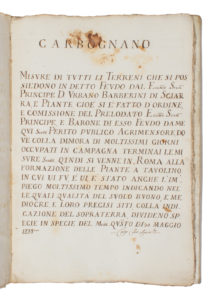 CARBOGNANO
MISURE DI TUTTI LI TERRENI CHE SI POS
SIEDONO IN DETTO FEUDO DAL
PRINCIPE D. URBANO BARBERINI DI SCIAR
RA, E PIANTE CIOE SI E FATTO D ORDINE
E COMISSIONE DEL PRELODATO
PRINCIPE E BARONE DI ESSO FEUDO DA ME
QUI PERITO PUBLICO AGRIMENSORE, DO
VE COLLA DIMORA DI MOLTISSIMI GIORNI
OCCUPATI IN CAMPAGNA TERMINAI LE MI
SURE QUINDI SI VENNE IN ROMA ALLA
FORMAZIONE DELLE PIANTE A TAVOLINO
IN CUI VI È STATO ANCHE L IM
PIEGO MOLTISSIMO TEMPO INDICANDO NEL
LE QUALI QUALITÀ DEL SUOLO BUONO E ME
DIOCRE E LORO PRECISI SITI COLLA INDI
CAZIONE DEL SOPRATERRA DIVIDENO SPE
CIE IN SPECIE DEL MED. QUESTO DI MAGGIO